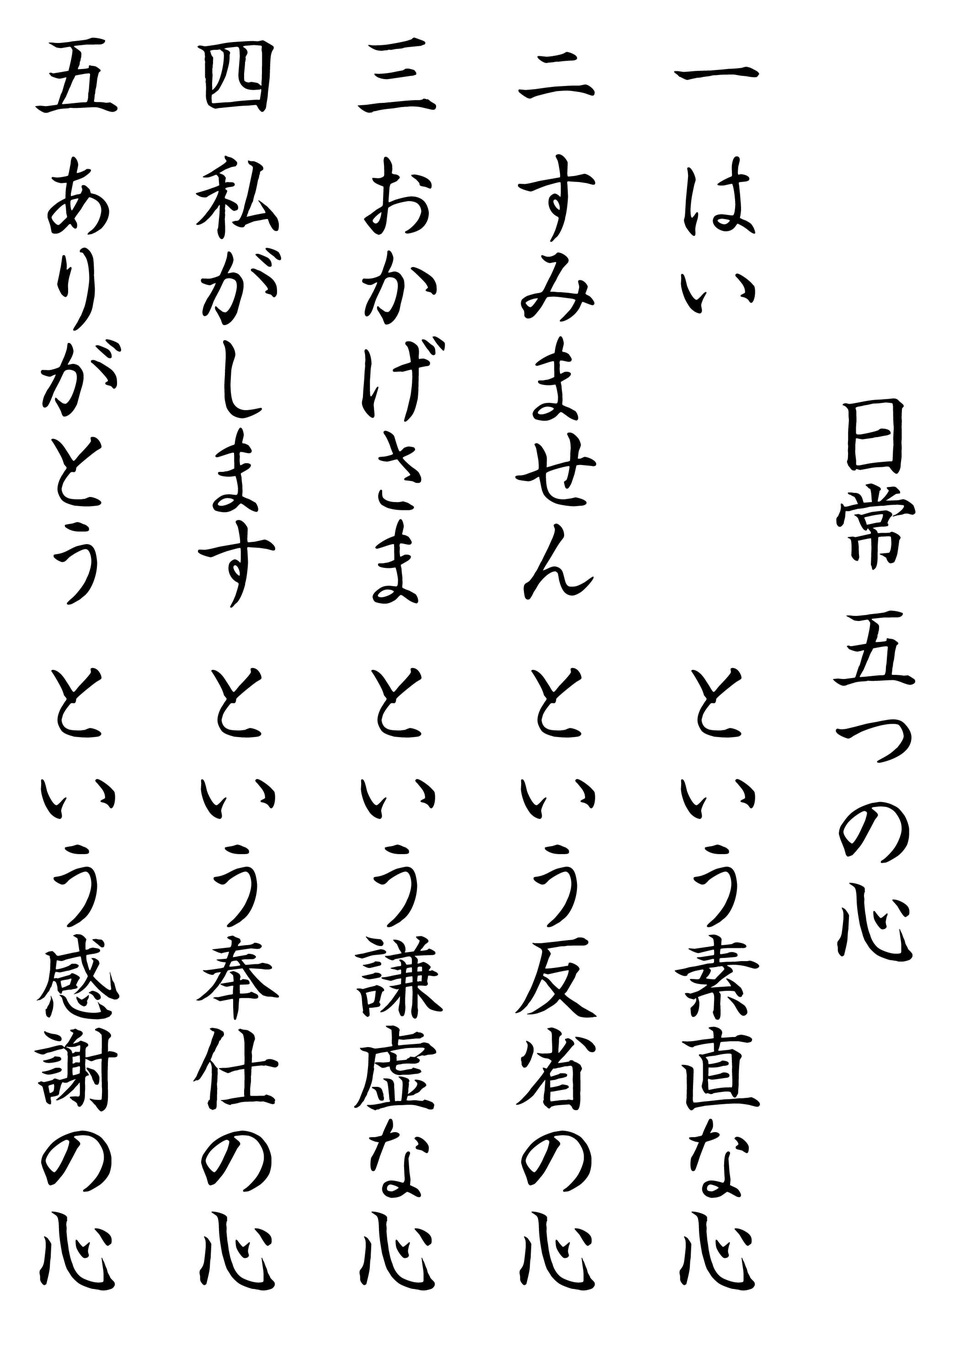 日常 五つの心
一 はい という素直な心
二 すみません という反省の心
三 おかげさま という謙虚な心
四 私がします という奉仕の心
五 ありがとう という感謝の心